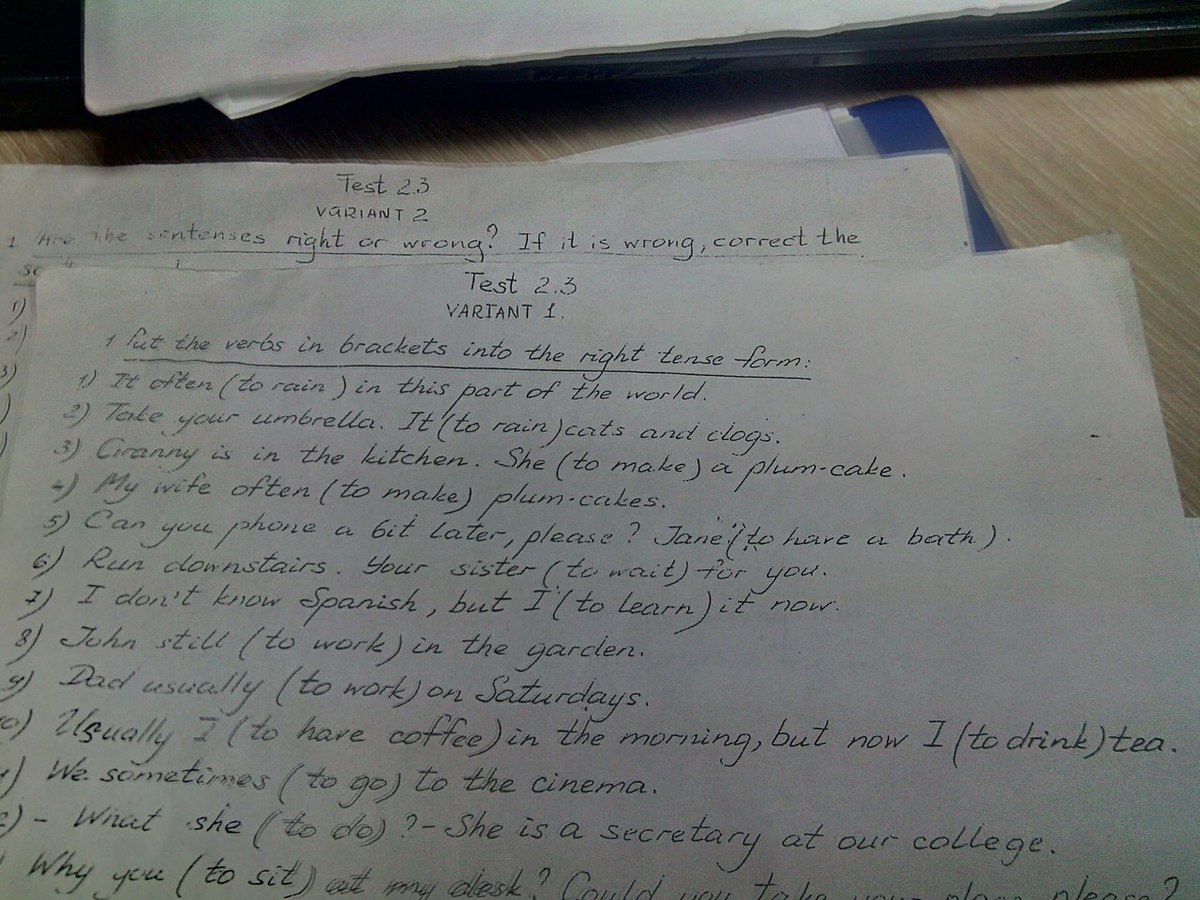 Test 2.3
VARIANT 2
1 Are the sentenses right or wrong? If it is wrong, correct the
1)
2)
3)
)
)
Test 2.3
VARIANT 1.
1 Put the verbs in brackets into the right tense form:
1) It often (to rain) in this part of the world.
2) Take your umbrella. It (to rain) cats and dogs.
3) Granny is in the kitchen. She (to make) a plum-cake.
4) My wife often (to make) plum-cakes.
5) Can you phone a bit later, please? Jane (to have a bath).
6) Run downstairs. Your sister (to wait) for you.
7) I don't know Spanish, but I (to learn) it now.
8) John still (to work) in the garden.
9) Dad usually (to work) on Saturdays.
10) Usually I (to have coffee) in the morning, but now I (to drink) tea.
) We sometimes (to go) to the cinema.
2) - What she (to do)? - She is a secretary at our college.
Why you (to sit) at my desk? Could you take your place please?